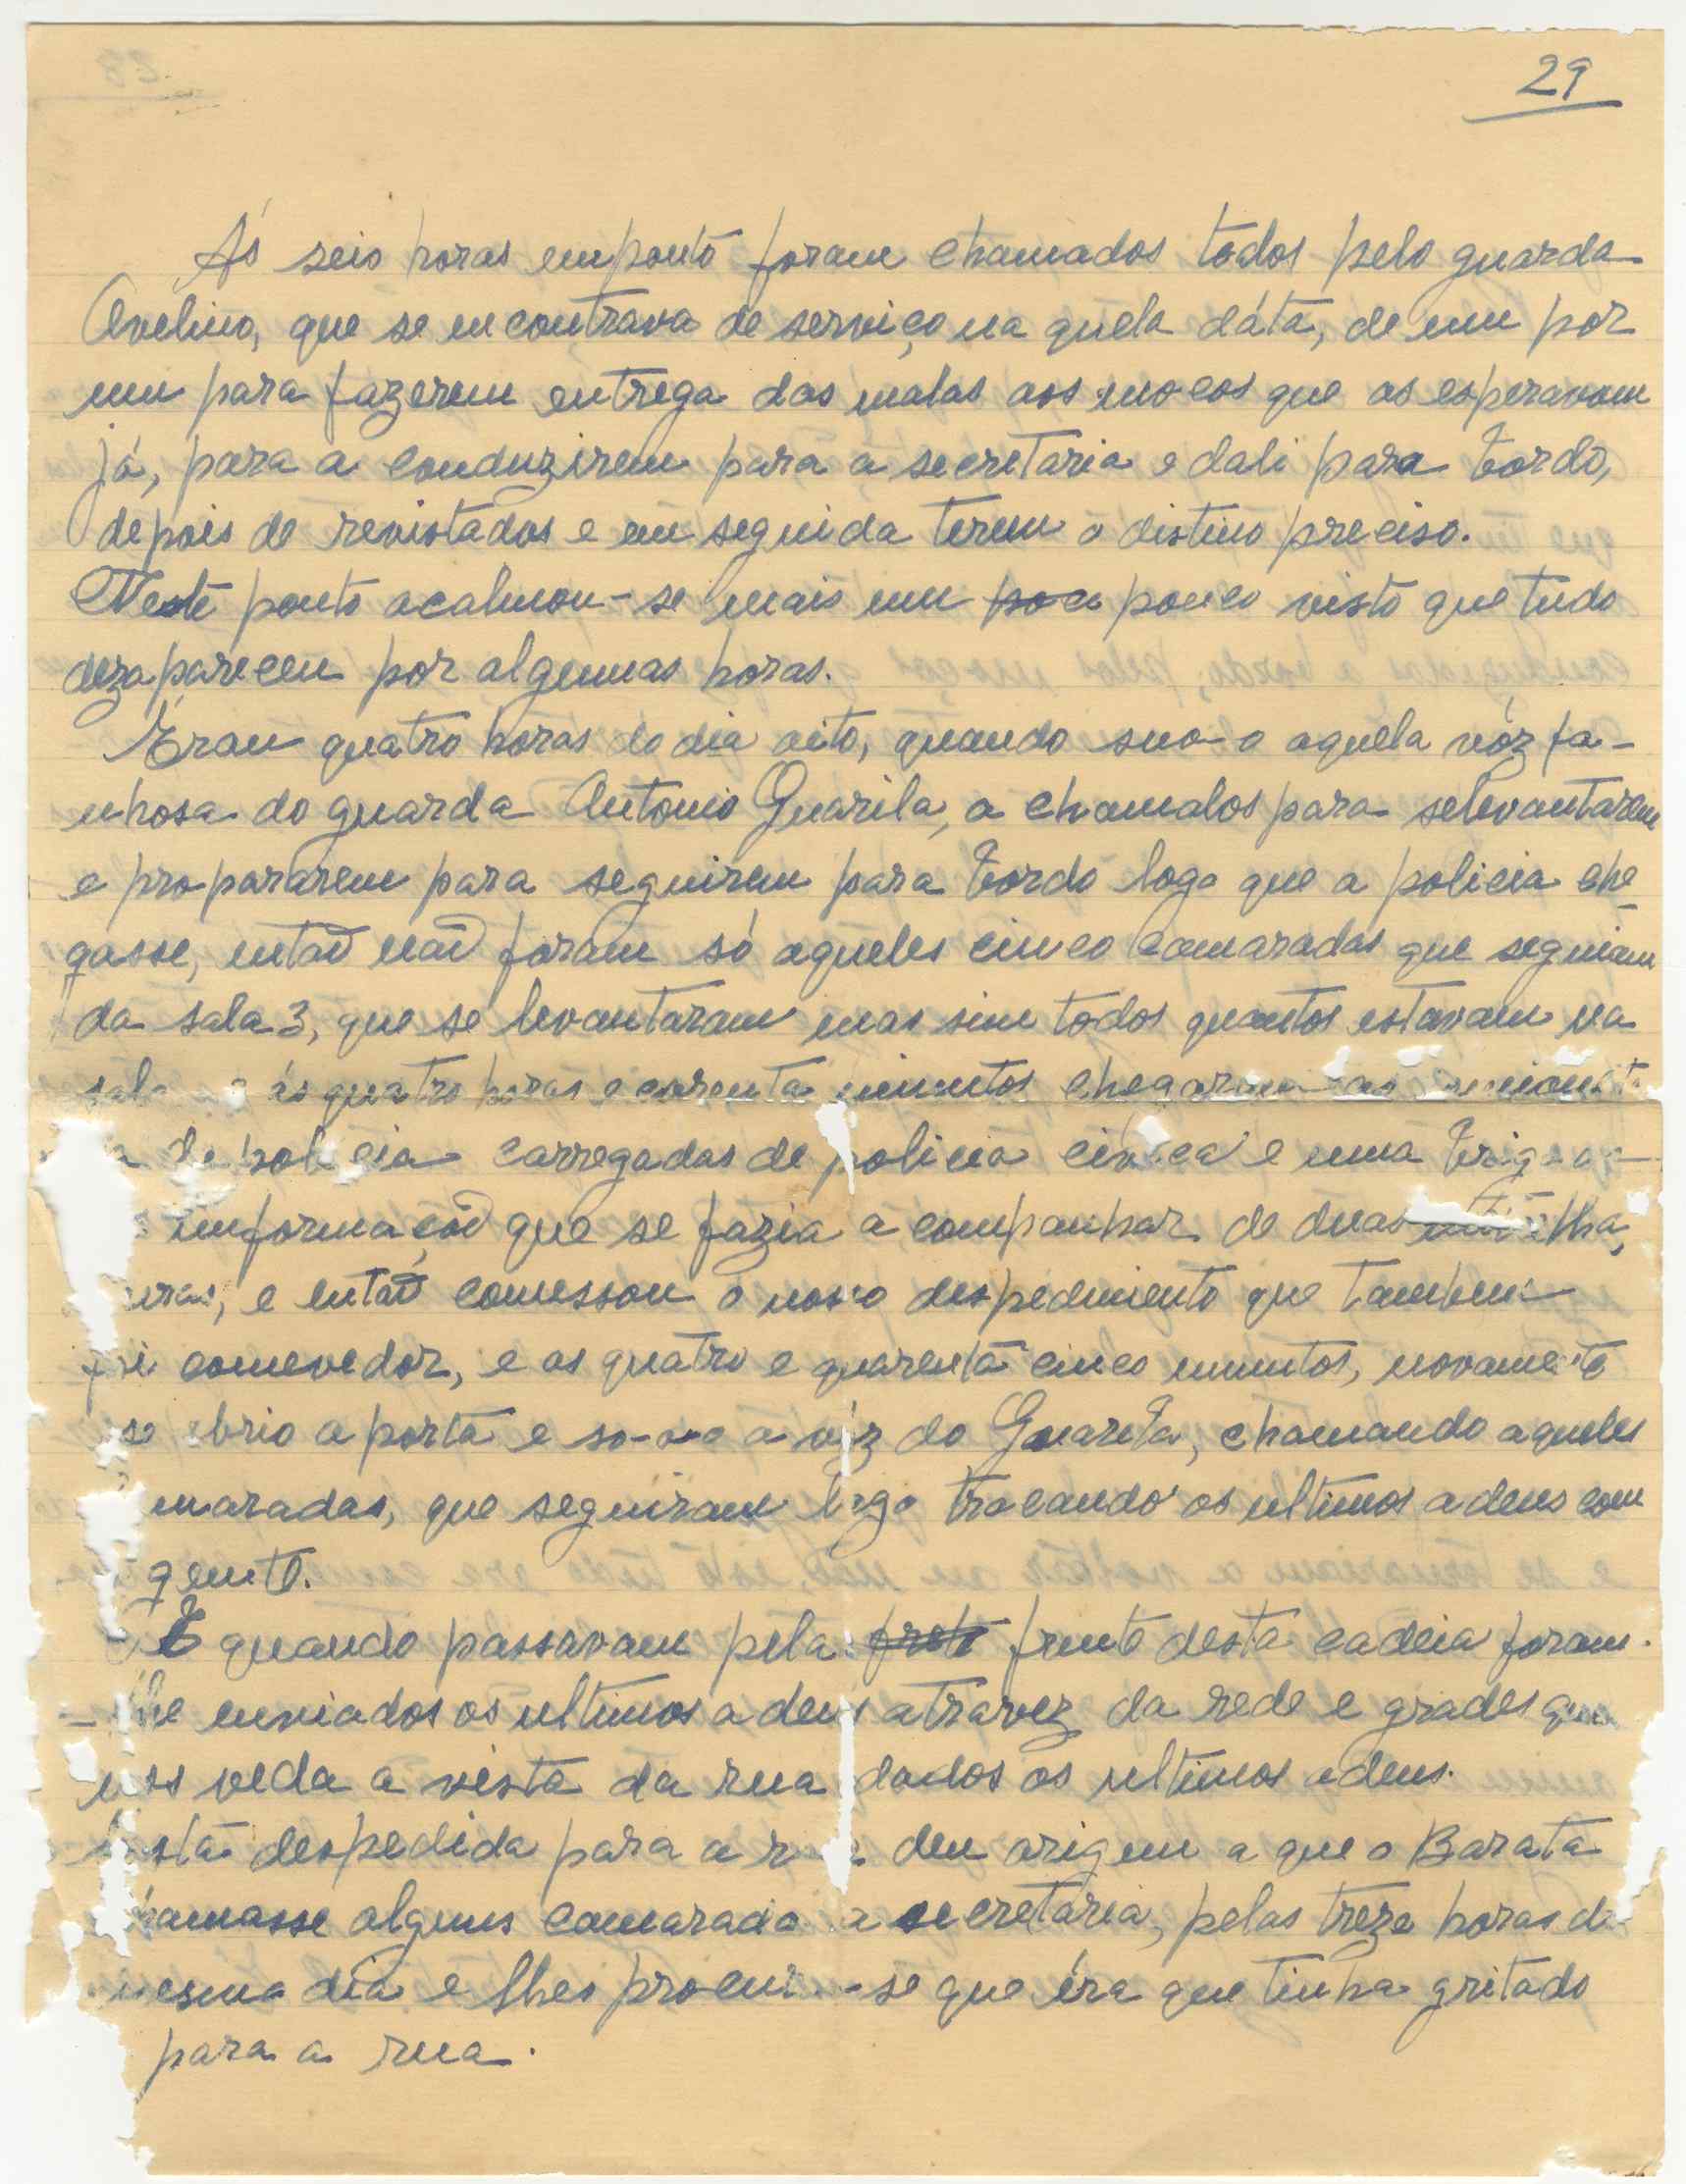 29
Ás seis horas emponto foram chamados todos pelo guarda
Avelino, que se encontrava de serviço na quela dáta, de um por
um para fazerem entrega das malas aos moços que as esperavam
já, para a conduzirem para a secretaria e dali para bordo,
depois de revistados e em seguida terem o distino preciso.
Neste ponto acalmou-se mais um poco pouco visto que tudo
dezapareceu por algumas horas.
Éram quatro horas do dia oito, quando suo-o aquela vóz fa-
nhosa do guarda Antonio Guarita, a chamalos para selevantarem
e propararem para seguirem para bordo logo que a policia che
gasse, entaõ naõ foram só aqueles cinco camaradas que seguiam
da sala 3, que se levantaram mas sim todos quantos estavam na
ás quatro horas e corenta minutos chegaram as
de policia carregadas de policia civica e uma
imformaçaõ que se fazia a companhar de duas
e entaõ comessou o nosso despedimento que tambem
foi comevedor, e as quatro e quarenta cinco minutos, novamente
se abrio a porta e so-o-o a vóz do Guarita, chamando aqueles
maradas, que seguiram logo trocando os ultimos adeus com
gente.
E quando passavam pela frete frente desta cadeia foram-
-lhe enviados os ultimos a deus atravez da rede e grades que
nos veda a vista da rua dados os ultimos adeus.
Esta despedida para a rua deu origem a que o Barata
chamasse alguns camarada a secretaria, pelas treze horas do
mesmo dia e lhes -se que éra que tinha gritado
para a rua.